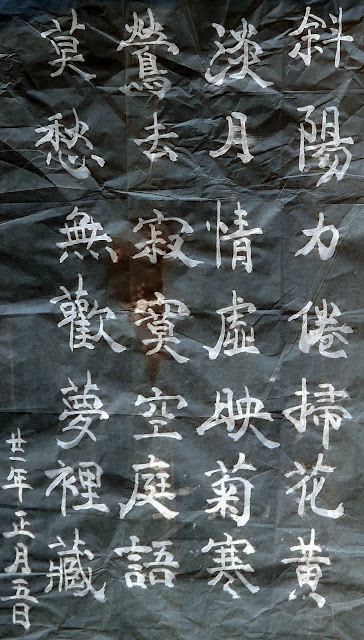 斜陽力倦掃花黃
淡月情虛映菊寒
鶯去寂寞空庭語
莫愁無歡夢裡藏
廿一年正月五日